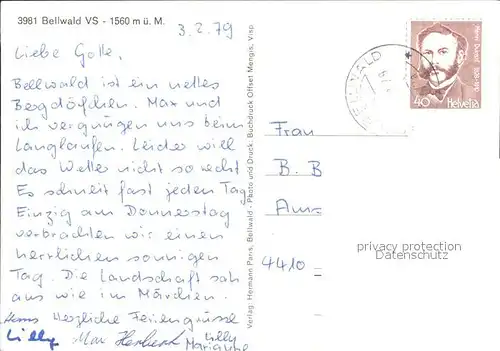 3981 Bellwald VS - 1560 m ü. M.
3. 2. 79
Liebe Gotte.
Bellwald ist ein nettes
Bergdörfchen. Max und
ich vergnügen uns beim
Langlaufen. Leider will
das Wetter nicht so recht
Es schneit fast jeden Tag
Einzig am Donnerstag
verbrachten wir einen
herrlichen sonnigen
Tag. Die Landschaft sah
aus wie im Märchen.
Herzliche Feriengrüsse
Lilly Max Herbert Lilly
Marianne
Verlag: Hermann Paris, Bellwald - Photo und Druck: Buchdruck Offset Mengis, Visp
BELLWALD
Henri Dunant 1828-1910
40 Helvetia
Frau
B. B
4410
privacy protection
Datenschutz